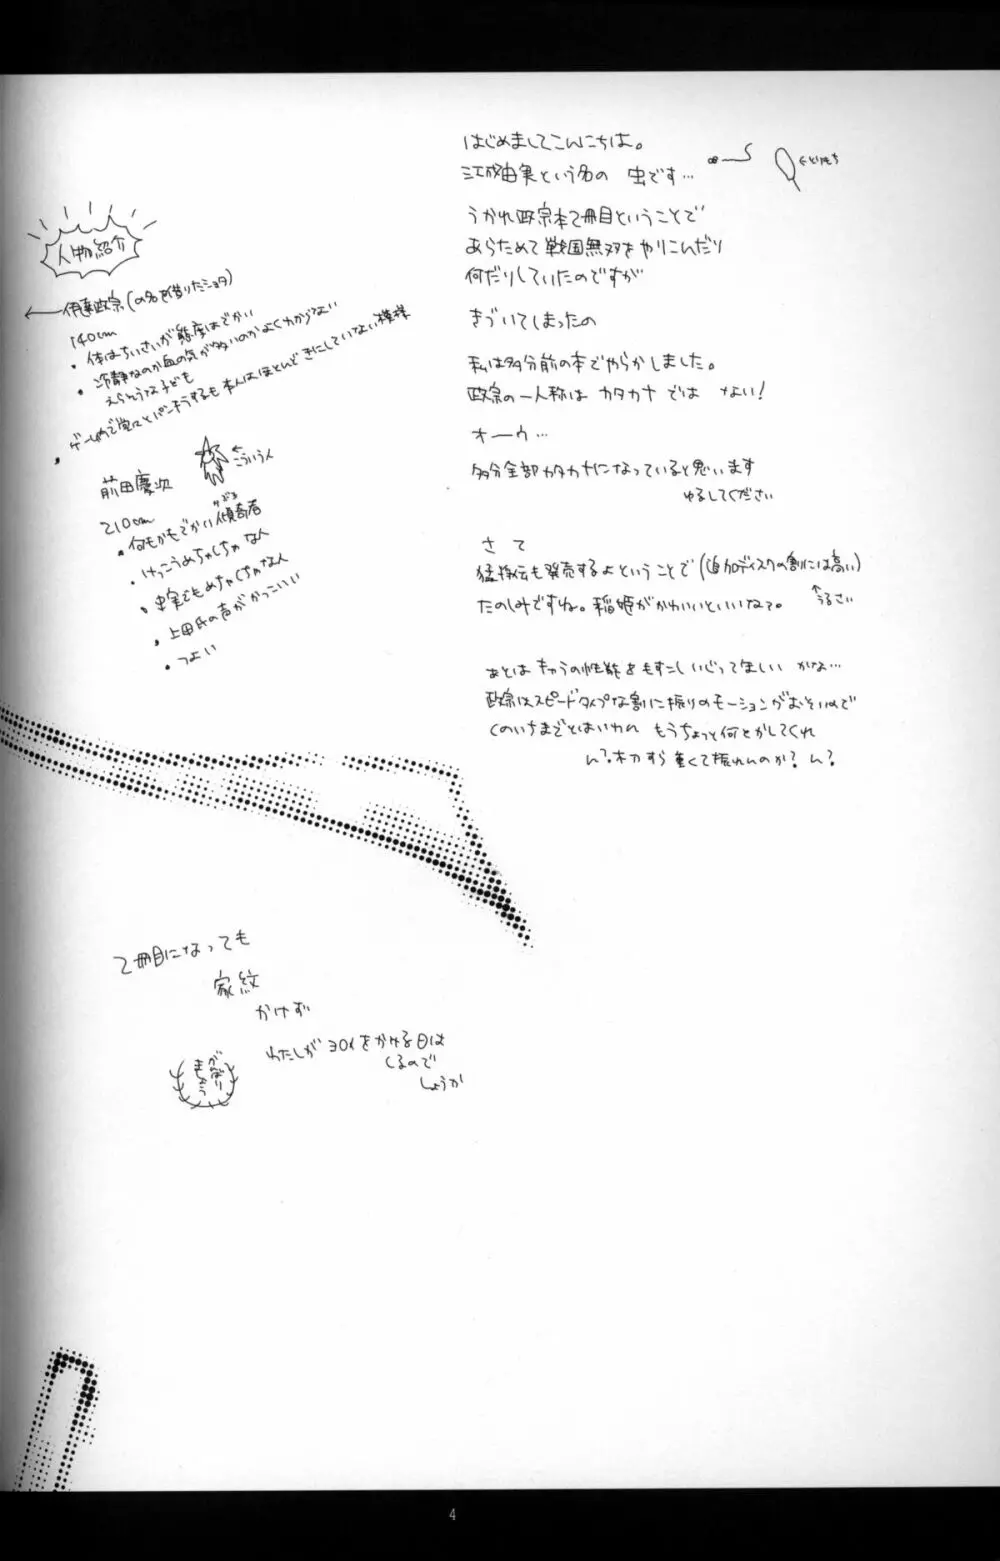 はじめましてこんにちは。
江成由実という名の 虫です…
うかれ政宗本2冊目ということで
あらためて戦国無双をやりこんだり
何だりしていたのですが
きづいてしまったの
私は多分前の本でやらかしました。
政宗の一人称は カタカナ では ない!
オーウ…
多分全部カタカナになっていると思います
ゆるしてください
さて
猛将伝も発売するよということで(追加ディスクの割には高い)
たのしみですね。稲姫がかわいいといいなて。
↑うるさい
あとは キャラの性能をもすこしいじってほしい かな…
政宗はスピードタイプな割に振りのモーションがおそいので
くのいちまでとはいわん もうちょっと何とかしてくれ
ん?木刀すら重くて振れんのか? ん?
人物紹介
← 伊達政宗(の名を借りたショタ)
140cm
・体はちいさいが態度はでかい
・冷静なのか血の気が多いのかよくわからない
えらそうな子ども
・ゲーム内で堂々とパンチラするも本人はほとんどきにしていない模様
前田慶次
←こういう人
210cm
・何もかもでかい傾奇者
・けっこうめちゃくちゃな人
・史実でもめちゃくちゃな人
・上田氏の声がかっこいい
・つよい
2冊目になっても
家紋
かけず
わたしがヨロイをかける日は
くるので
しょうか
がんばり
まっそう
4